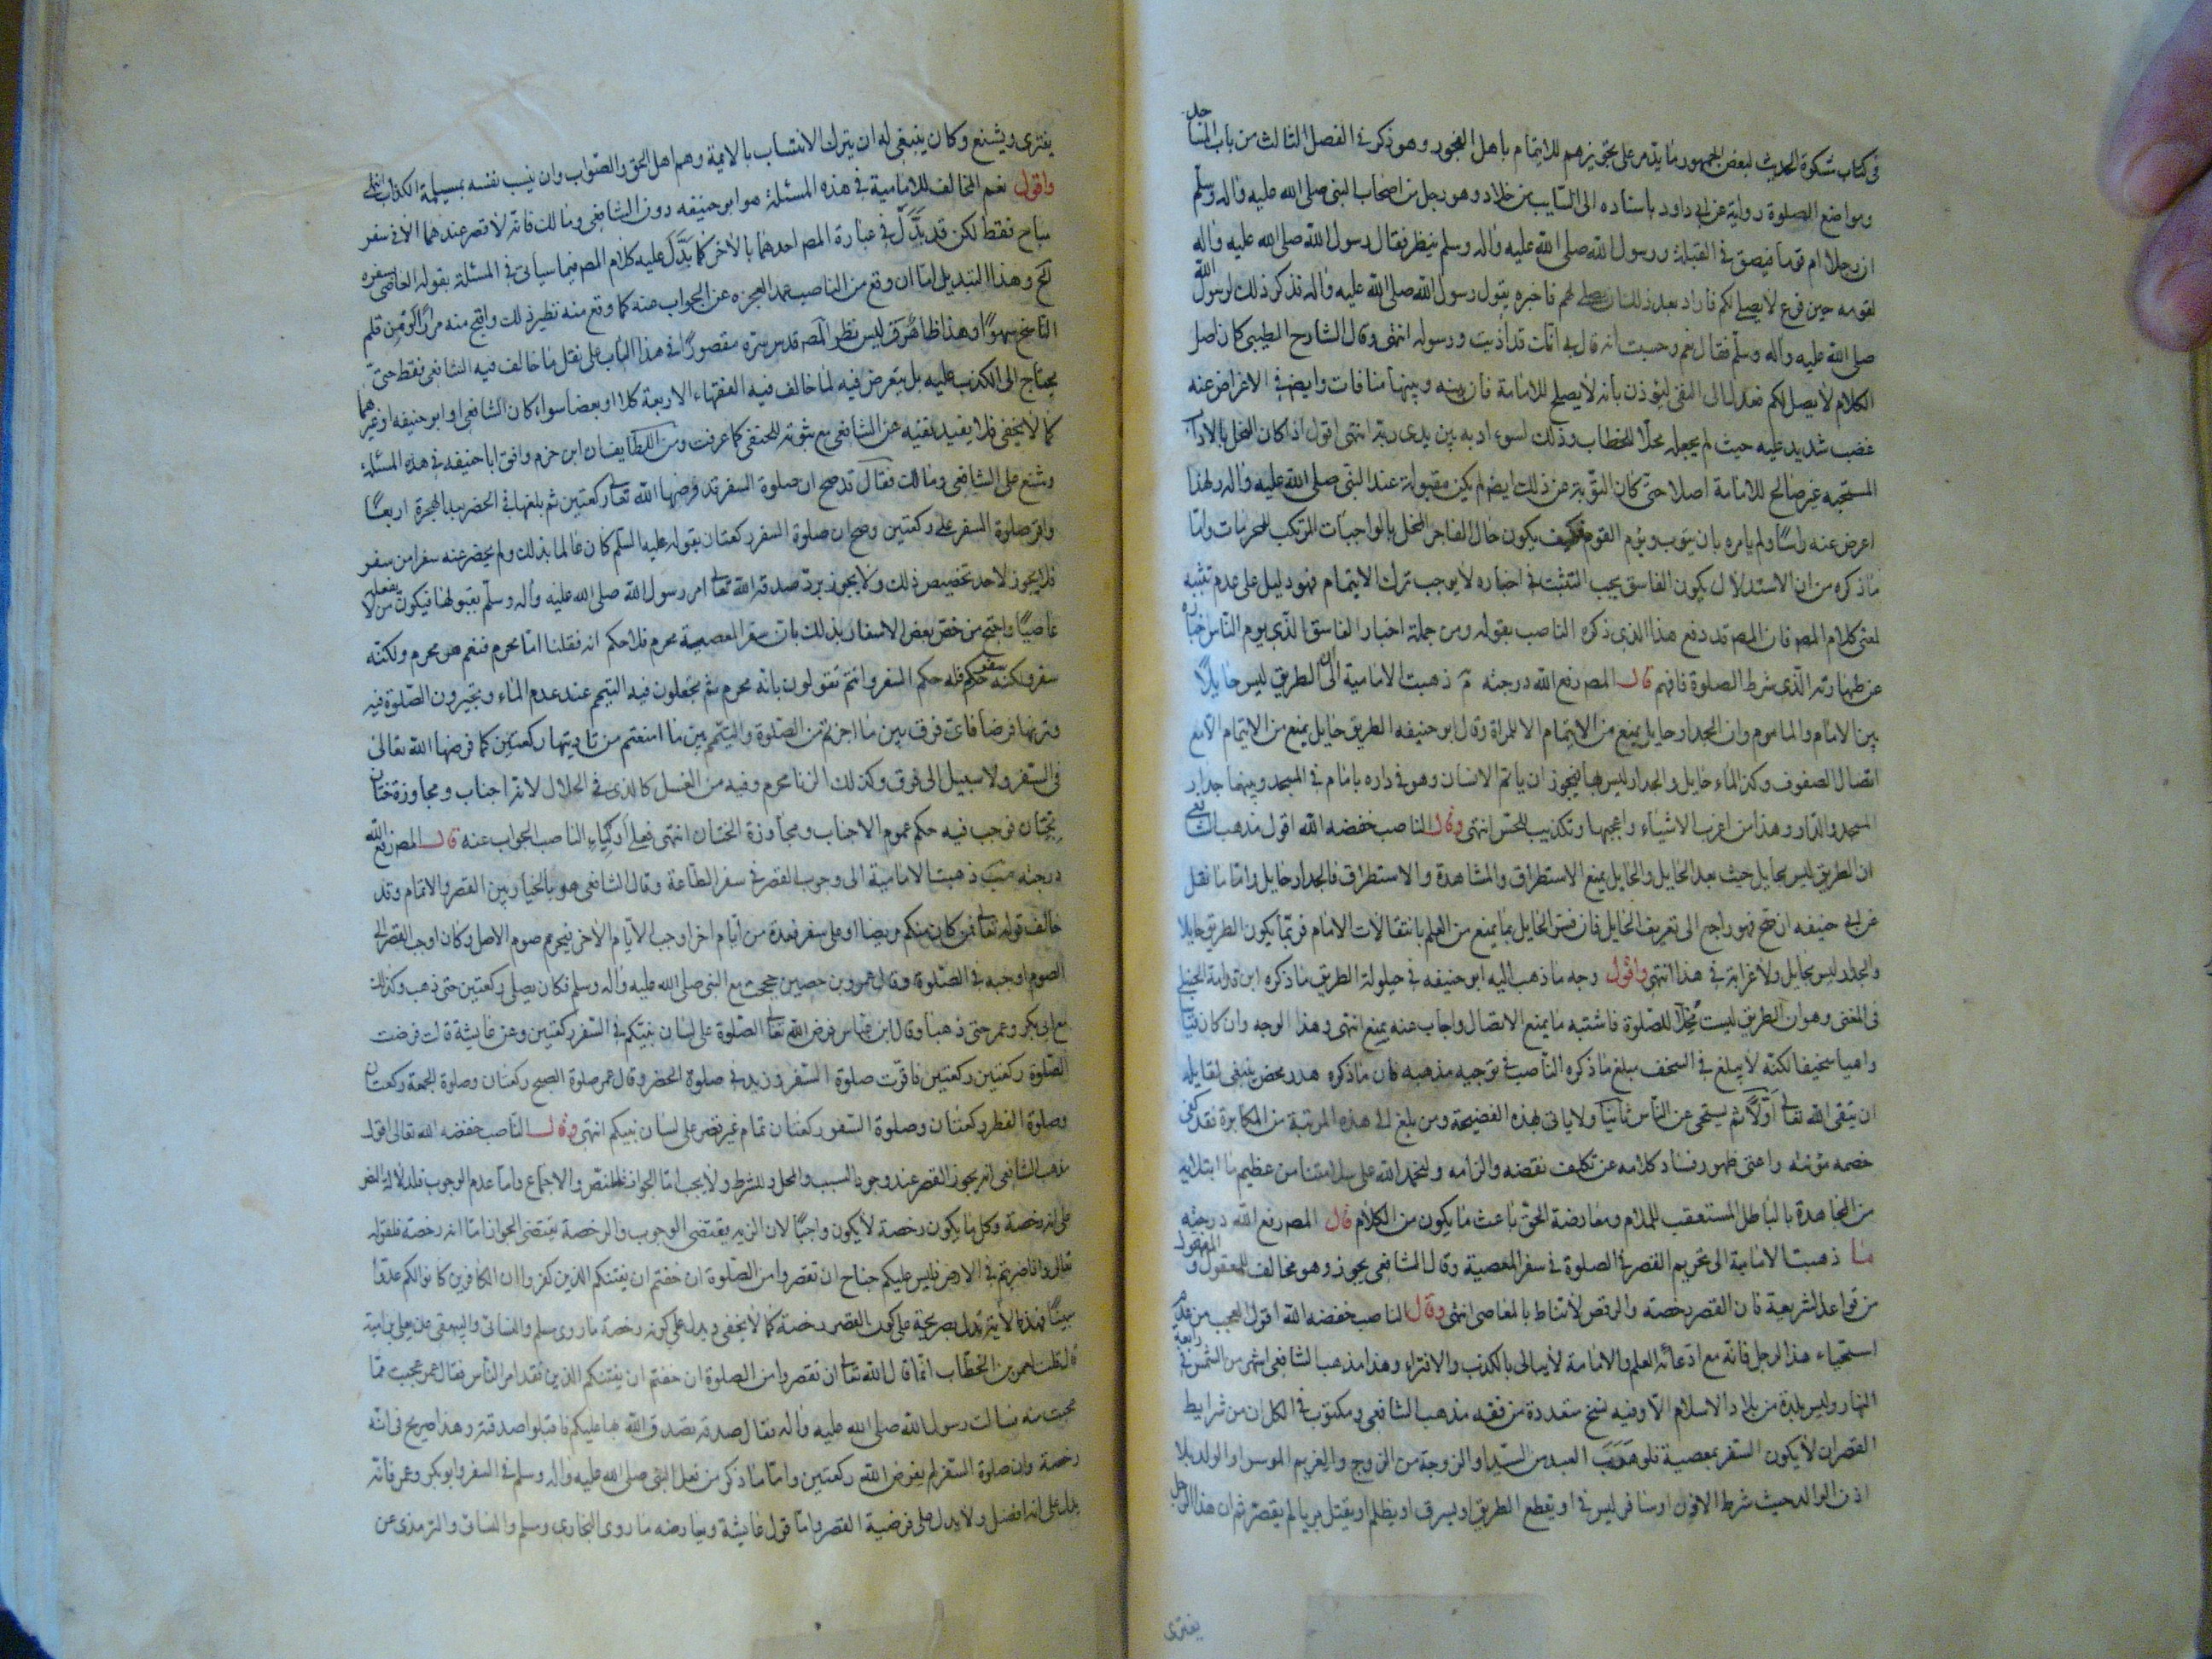 في كتاب مشكوة الحديث لبعض الجمهور ما يدل على تجويزهم للايتمام باهل الفجور وهو ذكر في الفصل الثالث من باب المساجد
ومواضع الصلوة رواية عن ابي داود باسناده الى السايب بن خلاد وهو رجل من اصحاب النبي صلى الله عليه واله وسلم
ان رجلا ام قوما فبصق في القبلة ورسول الله صلى الله عليه واله وسلم ينظر فقال رسول الله صلى الله عليه واله
لقومه حين فرغ لا يصلي لكم فاراد بعد ذلك ان يصلي لهم فاخبره بقول رسول الله صلى الله عليه واله فذكر ذلك لرسول الله
صلى الله عليه واله وسلم فقال نعم وحسبت انه قال انك قد اذيت ورسوله انتهى وقال الشارح الطيبي كان اصل
الكلام لا يصل لكم فعدل الى النفي ليؤذن بانه لا يصلح للامامة فان بينه وبينها منافات وايضا في الاعراض عنه
غضب شديد عليه حيث لم يجعله محلا للخطاب وذلك لسوء ادبه بين يدي ربه انتهى اقول اذا كان المخل بالاداب
المستحبه غير صالح للامامة اصلا حتى كان التوبة عن ذلك ايضا لم يكن مقبولة عند النبي صلى الله عليه واله ولهذا
اعرض عنه راسا ولم يامره بان يتوب ويؤم القوم فكيف يكون حال الفاجر المخل بالواجبات المرتكب للمحرمات واما
ما ذكره من ان الاستدلال بكون الفاسق يجب التثبت في اخباره لا يوجب ترك الايتمام فهو دليل على عدم تثبته
لمعنى كلام المصـ فان المصـ قد دفع هذا الذي ذكره الناصب بقوله ومن جملة اخبار الفاسق الذي يوم الناس اخباره
عن طهارته الذي شرط الصلوة فافهم قال المصـ رفع الله درجته ذهبت الامامية الى ان الطريق ليس حايلا
بين الامام والماموم وان الجدار حايل يمنع من الايتمام الا للمراة وقال ابو حنيفه الطريق حايل يمنع من الايتمام الا مع
اتصال الصفوف وكذا الماء حايل والجدار ليس حايلا فيجوز ان ياتم الانسان وهو في داره بامام في المسجد وبينهما جدار
المسجد والدار وهذا من اغرب الاشياء واعجبها وتكذيب للحس انتهى وقال الناصب خفضه الله اقول مذهب الشافعي
ان الطريق ليس بحايل حيث يعد الحايل والحايل يمنع الاستطراق والمشاهدة والاستطراق فالجدار حايل واما ما نقل
عن ابي حنيفه ان صح فهو راجع الى تعريف الحايل فان فسر الحايل بما يمنع من العلم بانتقالات الامام فربما يكون الطريق حايلا
والجدار ليس بحايل ولا غرابة في هذا انتهى واقول وجه ما ذهب اليه ابو حنيفه في حيلولة الطريق ما ذكره ابن قدامة الحنبلي
في المغني وهو ان الطريق ليست محلا للصلوة فاشتبه ما يمنع الاتصال واجاب عنه بمنع انتهى وهذا الوجه وان كان قياسا
واهيا سخيفا لكنه لا يبلغ في السخف مبلغ ما ذكره الناصب في توجيه مذهبه فان ما ذكره هدر محض ينبغي لقايله
ان يتقي الله تعالى اولا ثم يستحى عن الناس ثانيا ولا ياتي بهذه الفضيحة ومن بلغ الى هذه المرتبة من المكابرة فقد كفى
خصمه مؤنته واغنى ظهور فساد كلامه عن تكلف نقضه والزامه ولنحمد الله على سلامتنا من عظيم ما ابتلاه به
من المجاهدة بالباطل المستعقب للملام ومعارضة الحق باعث ما يكون من الكلام قال المصـ رفع الله درجته
ما ذهبت الامامية الى تحريم القصر في الصلوة في سفر المعصية وقال الشافعي يجوز وهو مخالف للمعقول والمنقول
من قواعد الشريعة فان القصر رخصة والرخص لا تناط بالمعاصي انتهى وقال الناصب خفضه الله اقول العجب من عدم
استحياء هذا الرجل فانه مع ادعائه العلم والامامة لا يبالي بالكذب والافتراء وهذا مذهب الشافعي اشهر من الشمس في رابعة
النهار وليس بلدة من بلاد الاسلام الا وفيه نسخ متعددة من فقه مذهب الشافعي ومكتوب في الكل ان من شرايط
القصر ان لا يكون السفر بمعصية فلو هرب العبد من السيد او الزوجة من الزوج والغريم الموسر او الولد بلا
اذن الوالد حيث شرط الاذن او سافر ليزني او يقطع الطريق او يسرق او يظلم او يقتل بريا لم يقصر ثم ان هذا الرجل
يفترى
يفترى ويشنع وكان ينبغي له ان يترك الانتساب بالايمة وهم اهل الحق والصواب وان ينسب نفسه بمسيلمة الكذاب انتهى
واقول نعم المخالف للامامية في هذه المسئلة هو ابو حنيفه دون الشافعي ومالك فانه لا قصر عندهما الا في سفر
مباح فقط لكن قد بدل في عبارة المصـ احدهما بالاخر كما يدل عليه كلام المصـ فيما سياتي في المسئلة بقوله العاصي بسفره
الخ وهذا التبديل اما ان وقع من الناصب عمدا لعجزه عن الجواب عنه كما وقع منه نظير ذلك واقبح منه مرارا او من قلم
الناسخ سهوا وهذا ظاهر فليس نظر المصـ قدس سره مقصورا في هذا الباب على نقل ما خالف فيه الشافعي فقط حتى
يحتاج الى الكذب عليه بل يتعرض فيه لما خالف فيه الفقهاء الاربعة كلا او بعضا سواء كان الشافعي او ابو حنيفه او غيرهما
كما لا يخفى فلا يفيد نفيه عن الشافعي مع ثبوته للحنفي كما عرفت ومن اللطايف ان ابن حزم وافق ابا حنيفه في هذه المسئلة
وشنع على الشافعي ومالك فقال قد صح ان صلوة السفر قد فرضها الله تعالى ركعتين ثم بلغها في الحضر بعد الهجرة اربعا
واقر صلوة السفر على ركعتين وصح ان صلوة السفر ركعتان بقوله عليه السلم كان عالما بذلك ولم يخص عنه سفرا من سفر
فلا يجوز لاحد تخصيص ذلك ولا يجوز برد صدقة الله تعالى امر رسول الله صلى الله عليه واله وسلم بقبولها فيكون من لا يفعله
عاصيا واحتج من خص بعض الاسفار بذلك بان سفر المعصية محرم فلا حكم له فقلنا اما محرم فنعم هو محرم ولكنه
سفر ولكنه سفر فله حكم السفر وانتم تقولون بانه محرم ثم تجعلون فيه التيمم عند عدم الماء وتجيزون الصلوة فيه
وترونها فرضا فاي فرق بين ما اجزتم من الصلوة والتيمم بين ما امتنعتم من تاديتها ركعتين كما فرضها الله تعالى
في السفر ولا سبيل الى فرق وكذلك الزنا محرم وفيه من الغسل كالذي في الحلال لانه اجناب ومجاوزة ختان
بختان فوجب فيه حكم عموم الاجناب ومجاوزة الختان انتهى فعلى اولياء الناصب الجواب عنه قال المصـ رفع الله
درجته ذهبت الامامية الى وجوب القصر في سفر الطاعة وقال الشافعي هو بالخيار بين القصر والاتمام وقد
خالف قوله تعالى فمن كان منكم مريضا او على سفر فعدة من ايام اخر اوجب الايام الاخر فيحرم صوم الاصل وكان اوجب القصر في
الصوم اوجبه في الصلوة وقال عمرو بن حصين حججت مع النبي صلى الله عليه واله وسلم فكان يصلي ركعتين حتى ذهب وكذلك
مع ابي بكر وعمر حتى ذهبا وقال ابن عباس فرض الله تعالى الصلوة على لسان نبيكم في السفر ركعتين وعن عايشة قالت فرضت
الصلوة ركعتين ركعتين فاقرت صلوة السفر وزيد في صلوة الحضر وقال عمر صلوة الصبح ركعتان وصلوة الجمعة ركعتان
وصلوة الفطر ركعتان وصلوة السفر ركعتان تمام غير قصر على لسان نبيكم انتهى وقال الناصب خفضه الله تعالى اقول
مذهب الشافعي انه يجوز القصر عند وجود السبب والمحل والشرط ولا يجب اما الجواز فللنص والاجماع واما عدم الوجوب فلدلالة النص
على انه رخصة وكل ما يكون رخصة لا يكون واجبا لان الزيد يقتضي الوجوب والرخصة يقتضي الجواز اما انه رخصة فلقوله
تعالى واذا ضربتم في الارض فليس عليكم جناح ان تقصروا من الصلوة ان خفتم ان يفتنكم الذين كفروا ان الكافرين كانوا لكم عدوا
مبينا فهذه الاية تدل بصريحة على كون القصر رخصة كما لا يخفى ويدل على كونه رخصة ما روى مسلم والنسائي والبيهقي عن يعلى بن امية
قال قلت لعمر بن الخطاب انما قال الله تعالى ان تقصروا من الصلوة ان خفتم ان يفتنكم الذين فقد امن الناس فقال عمر عجبت مما
عجبت منه فسالت رسول الله صلى الله عليه واله فقال صدقة تصدق الله بها عليكم فاقبلوا صدقته وهذا صريح في انه
رخصة وان صلوة السفر لم يفرض الله ركعتين واما ما ذكر من فعل النبي صلى الله عليه واله وسلم في السفر وابو بكر وعمر فانه
يدل على انه افضل ولا يدل على فرضية القصر واما قول عايشة ويعارضه ما روى البخاري ومسلم والنسائي والترمذي عن